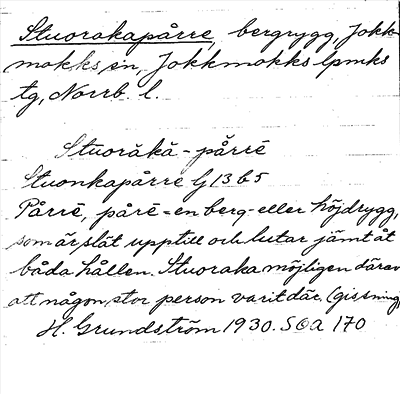 Stuorakapårre, bergrygg, Jokk-
mokks sn, Jokkmokks lpmks
tg, Norrb. l.
Stuorăkă-pårrē
Stuonkapårre G 13 b 5
Pårrē, pårē = en berg- eller höjdrygg,
som är slät upptill och lutar jämt åt
båda hållen. Stuoraka möjligen därav
att någon stor person varit där. (gissning)
H. Grundström 1930. SOA 170